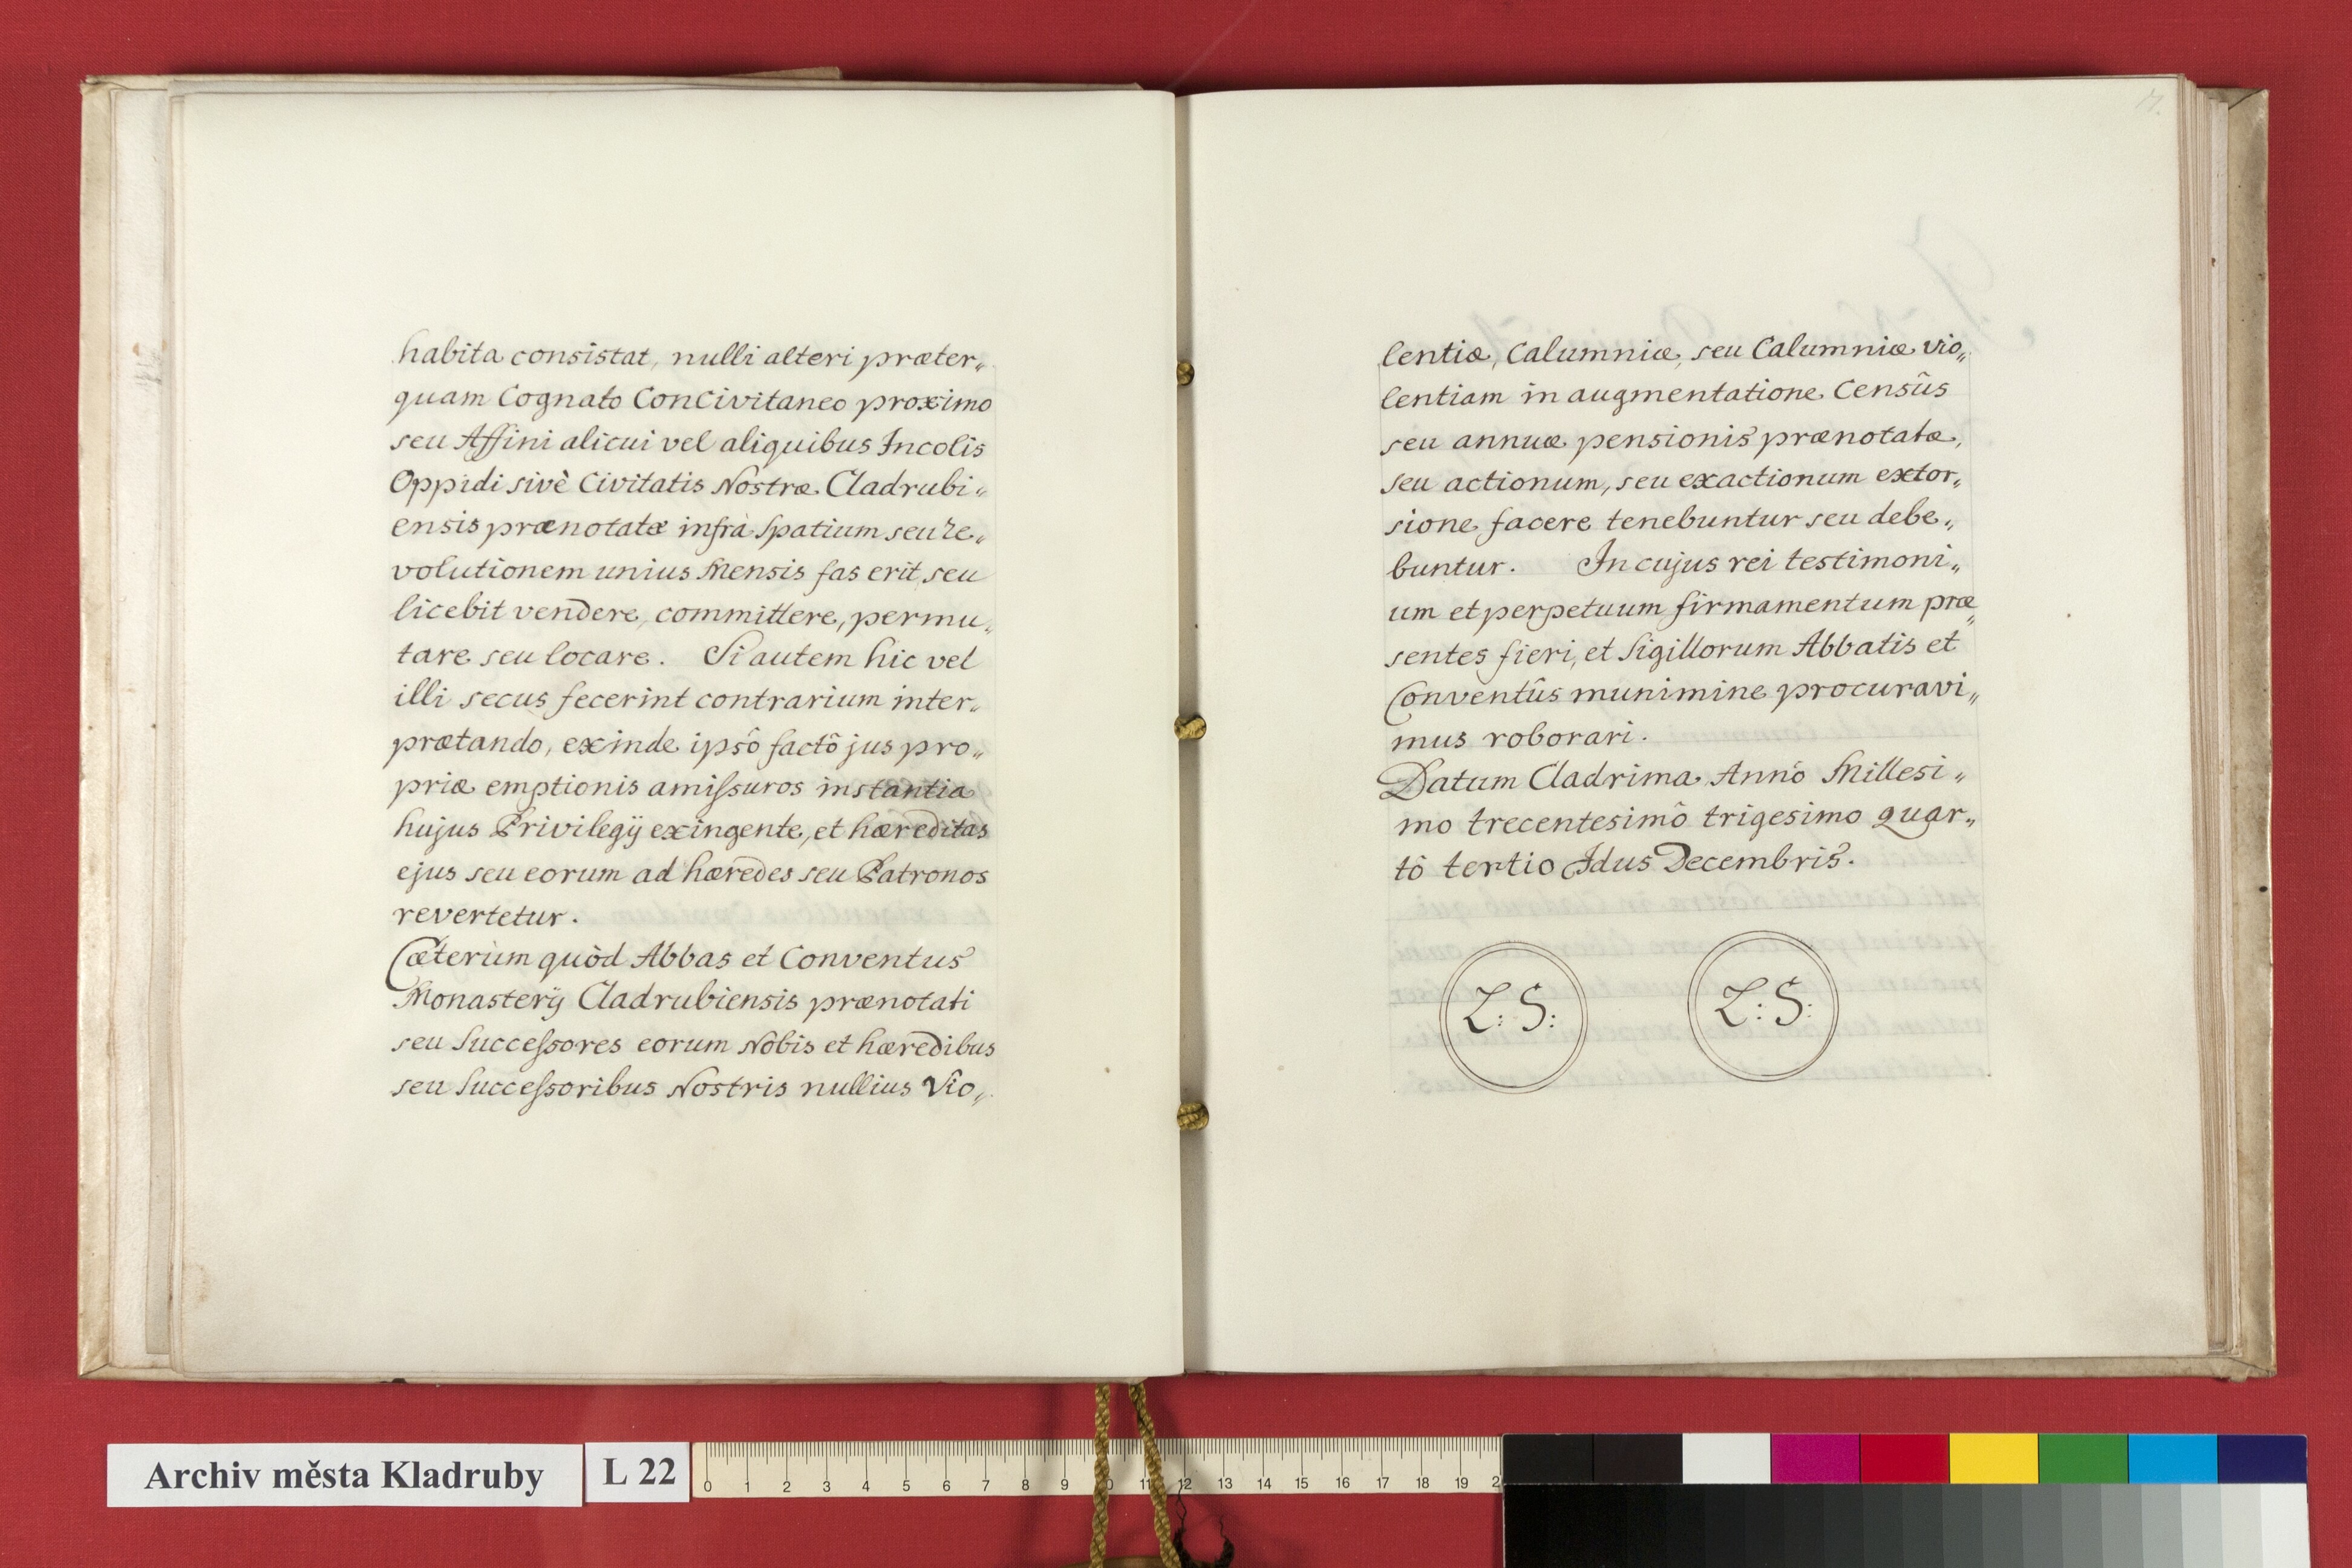 habita consistat, nulli alteri præter„
quam Cognato Concivitaneo proximo
seu Affini alicui vel aliquibus Incolis
Oppidi sivè Civitatis Nostræ Cladrubi„
ensis prænotatæ infrà spatium seu re„
volutionem unius Mensis fas erit, seu
licebit vendere, committere, permu„
tare seu locare. Si autem hic vel
illi secus fecerint contrarium inter„
prætando, exinde ipsô factô jus pro„
priæ emptionis amiſsuros instantia
hujus Privilegÿ exingente, et hæreditas
ejus seu eorum ad hæredes seu Patronos
revertetur.
Cæterùm quòd Abbas et Conventus
Monasterÿ Cladrubiensis prænotati
seu Succeſsores eorum Nobis et hæredibus
seu Succeſsoribus Nostris nullius Vio„
17.
lentiæ, Calumniæ, seu Calumniæ vio„
lentiam in augmentatione Censûs
seu annuæ pensionis prænotatæ,
seu actionum, seu exactionum extor„
sione facere tenebuntur seu debe„
buntur. In cujus rei testimoni„
um et perpetuum firmamentum præ„
sentes fieri, et Sigillorum Abbatis et
Conventûs munimine procuravi„
mus roborari.
Datum Cladrima Annô Millesi„
mo trecentesimô trigesimo quar„
tô tertio Idus Decembris.
L: S: L: S:
Archiv města Kladruby L 22
0 1 2 3 4 5 6 7 8 9 10 11 12 13 14 15 16 17 18 19 2